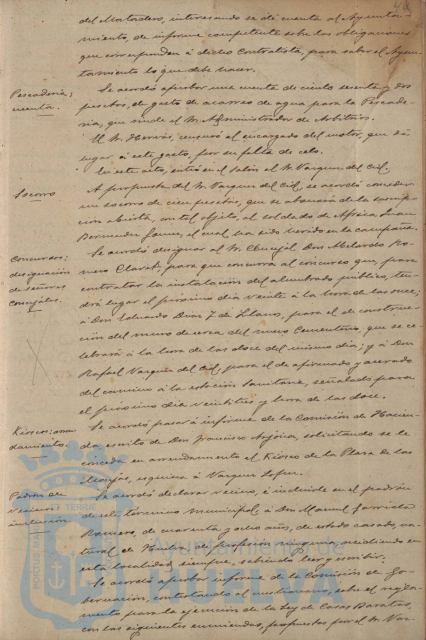 del Matadero, interesando se dé cuenta al Ayunta-
miento, de informe competente sobre las obligaciones
que corresponden á dicho Contratista, para saber el Ayun-
tamiento lo que debe hacer.
Pescadería;
cuenta.
Se acordó aprobar una cuenta de ciento sesenta y dos
pesetas, de gasto de acarreo de agua para la Pescade-
ría, que rinde el Sr. Administrador de Arbitrios.
El Sr. Hervás, censuró al encargado del motor, que dá
lugar, á este gasto, por su falta de celo.
En este acto, entró en el Salón el Sr. Vazquez del Cid.
Socorro
A propuesta del Sr. Vazquez del Cid, se acordó conceder
un socorro de cien pesetas, que se abonará de la suscrip-
ción abierta, con tal objeto, al soldado de Africa Juan
Bermudez, el cual ha sido herido en la campaña.
Concursos;
designación
de señores
Concejales.
Se acordó designar al Sr. Concejal Don Melardo Ro-
mero Claret, para que concurra al concurso que, para
contratar la instalación del alumbrado público, ten-
drá lugar el próximo dia veinte á la hora de las once;
á Don Eduardo Diaz F. de Llanos, para el de construc-
ción del muro de cerca del nuevo Cementerio, que se ce-
lebrará á la hora de las doce del mismo dia; y á Don
Rafael Vazquez del Cid, para el de afirmado y acerado
del camino á la estación Sanitaria, señalado para
el próximo dia veintitres y hora de las doce.
Kiosco: arren-
damiento.
Se acordó pasar á informe de la Comisión de Hacien-
da, escrito de Don Francisco Asjóna, solicitando se le
conceda en arrendamiento el Kiosco de la Plaza de las
Monjas, esquina á Vazquez Lopez.
Padrón de
vecinos:
inclusión
Se acordó declarar vecino, é incluirle en el padrón
de este término Municipal, á Don Manuel
Romero, de cuarenta y ocho años, de estado casado, na-
tural de Huelva, de profesión ninguna, residiendo en
esta localidad, siempre, sabiendo leer y escribir.
Se acordó aprobar informe de la Comisión de Go-
bernación, contestando al cuestionario, sobre el regla-
mento para la ejecución de la Ley de Casas Baratas,
con las siguientes enmiendas, propuestas por el Sr. Vaz-
PORTUS MARIS ET TERRE CUSTODIA
Ayuntamiento de